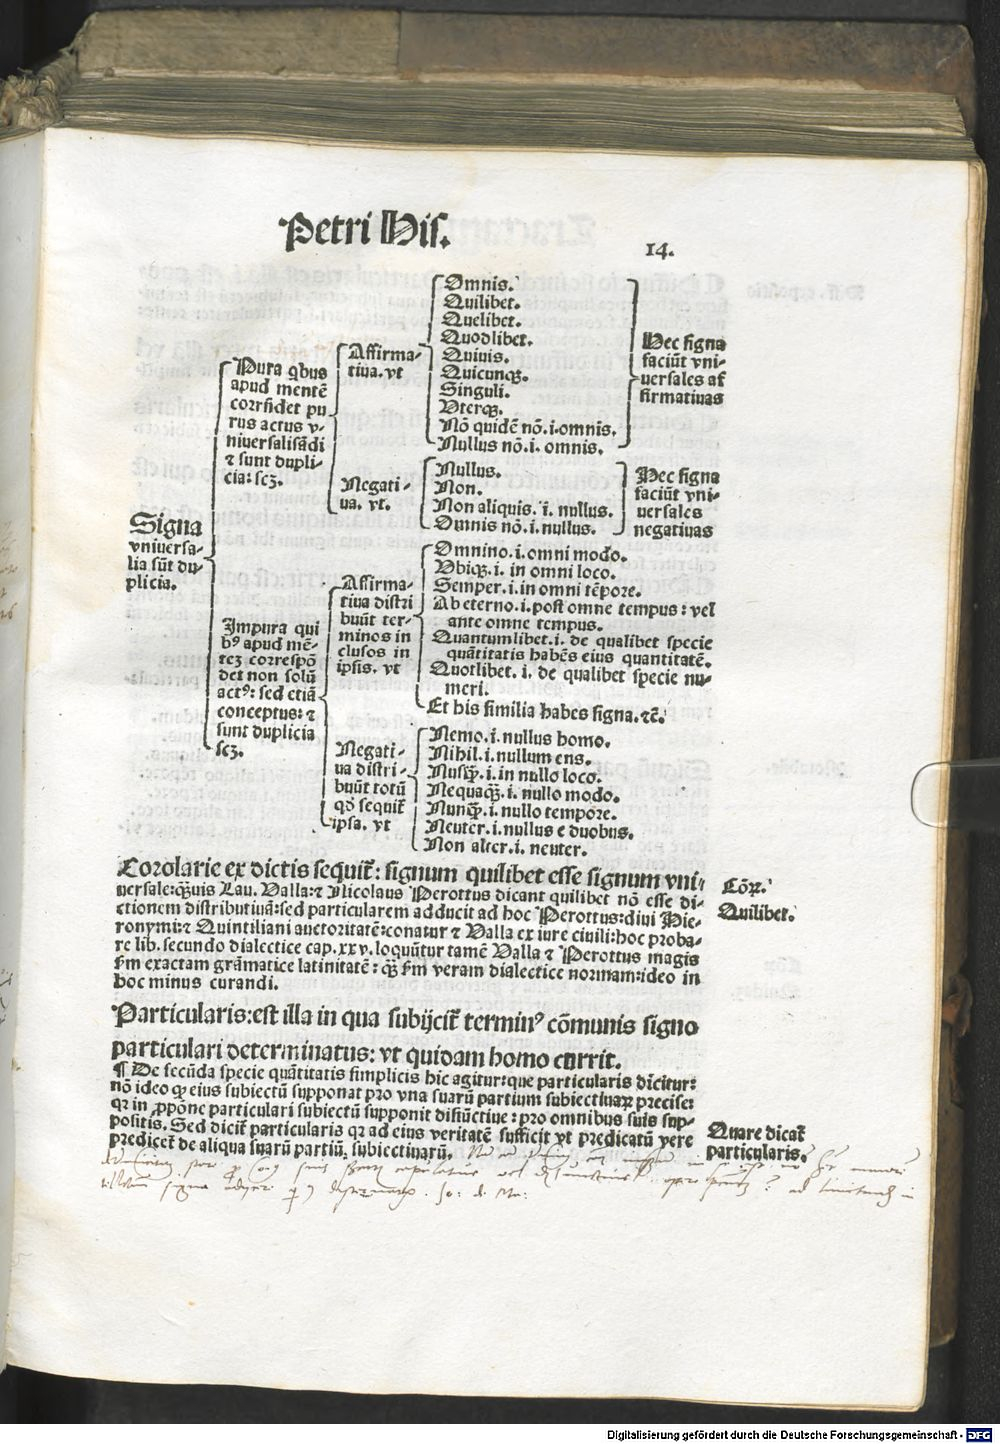 Petri His.
14.
Signa
vniuersa-
lia sūt du
plicia.
Pura q̄bus
apud mentē
corrn̄det pu
rus actus v-
niuersalisādi
⁊ sunt dupli-
cia: scz.
Affirma-
tiua. vt
Omnis.
Quilibet.
Quelibet.
Quodlibet.
Quiuis.
Quicunqꝫ.
Singuli.
Vterqꝫ.
Nō quidē nō .i. omnis.
Nullus nō .i. omnis.
Hec signa
faciūt vni-
uersales af
firmatiuas
Negati-
ua. vt.
Nullus.
Non.
Non aliquis. i. nullus.
Omnis nō .i. nullus.
Hec signa
faciūt vni-
uersales
negatiuas
Impura qui
bꝰ apud mē-
teꝫ correspō
det non solū
actꝰ: sed etiā
conceptus: ⁊
sunt duplicia
scꝫ.
Affirma-
tiua distri
buūt ter-
minos in
clusos in
ipsis. vt
Omnino .i. omni modo.
Vbiqꝫ .i. in omni loco.
Semper .i. in omni tēpore.
Ab eterno .i. post omne tempus: vel
ante omne tempus.
Quantumlibet .i. de qualibet specie
quātitatis habēs eius quantitatē.
Quotlibet .i. de qualibet specie nu-
meri.
Et his similia habes signa. ⁊c̄.
Negati-
ua distri-
buūt totū
qđ sequit᷑
ipsa. vt
Nemo .i. nullus homo.
Nihil .i. nullum ens.
Nusqꝫ̄ .i. in nullo loco.
Nequaqꝫ̄ .i. nullo modo.
Nunqꝫ̄ .i. nullo tempore.
Neuter .i. nullus e duobus.
Non alter .i. neuter.
Corolarie ex dictis sequit᷑: signum quilibet esse signum vni-
uersale: qꝫ̄uis Lau. Valla: ⁊ Nicolaus Perottus dicant quilibet nō esse di-
ctionem distributiuā: sed particularem adducit ad hoc Perottus: diui Hie-
ronymi: ⁊ Quintiliani auctoritatē: conatur ⁊ Valla ex iure ciuili: hoc proba-
re lib. secundo dialectice cap. xxv. loquūtur tamē Valla ⁊ Perottus magis
ſm exactam grāmatice latinitatē: qꝫ̄ ſm veram dialectice normam: ideo in
hoc minus curandi.
Coꝝ.
Quilibet.
Particularis: est illa in qua subijcit᷑ terminꝰ cōmunis signo
particulari determinatus: vt quidam homo currit.
¶ De secūda specie quātitatis simplicis hic agitur: que particularis dicitur:
nō ideo ꝙ eius subiectū supponat pro vna suarū partium subiectiuaꝝ precise:
qꝛ in ꝓpōne particulari subiectū supponit disiūctiue: pro omnibus suis sup-
positis. Sed dicit᷑ particularis qꝛ ad eius veritatē sufficit ꝙ predicatū vere
predicet᷑ de aliqua suarū partiū subiectiuarū.
Quare dicat᷑
particularis.
Digitalisierung gefördert durch die Deutsche Forschungsgemeinschaft - DFG